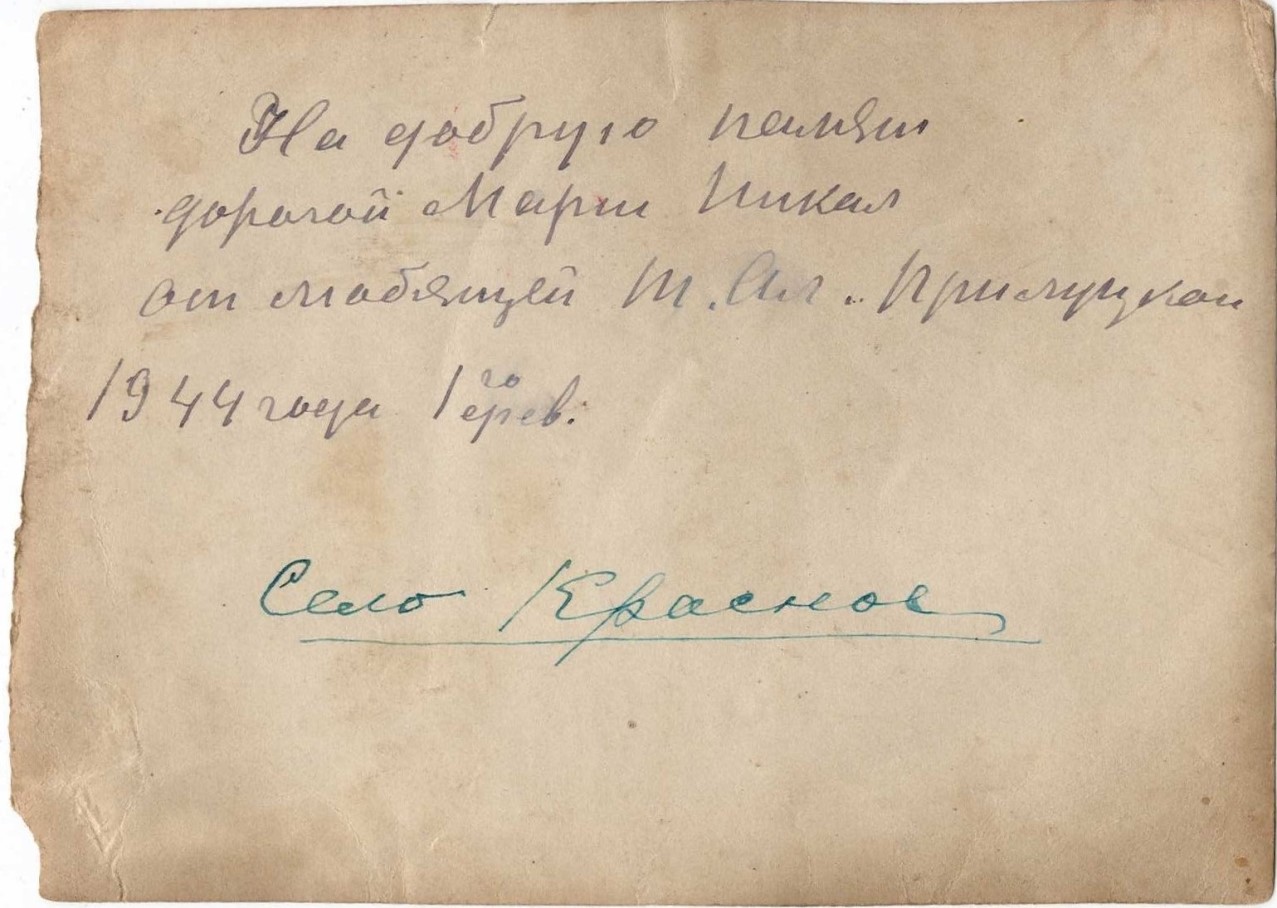 На добрую памяти
дорогой Марии Никал
от любящей Т. Ал. Прилуцкой
1944 года 1го фев.
Село Красное